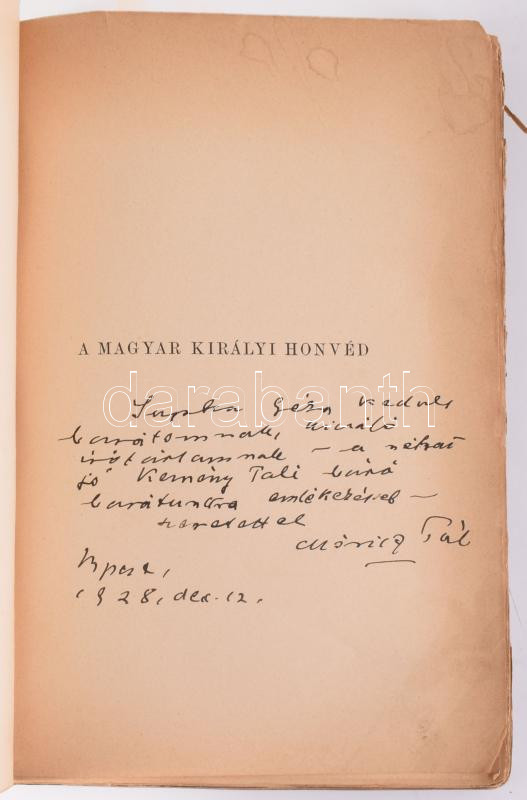 A MAGYAR KIRÁLYI HONVÉD
Supka Géza kedves
barátomnak, kiváló
írótársamnak – a néhai
jó Kemény Pali báró
barátunkra emlékezéssel –
szeretettel
Móricz Pál
Bpest,
1928. dec. 12.
darabanth.com